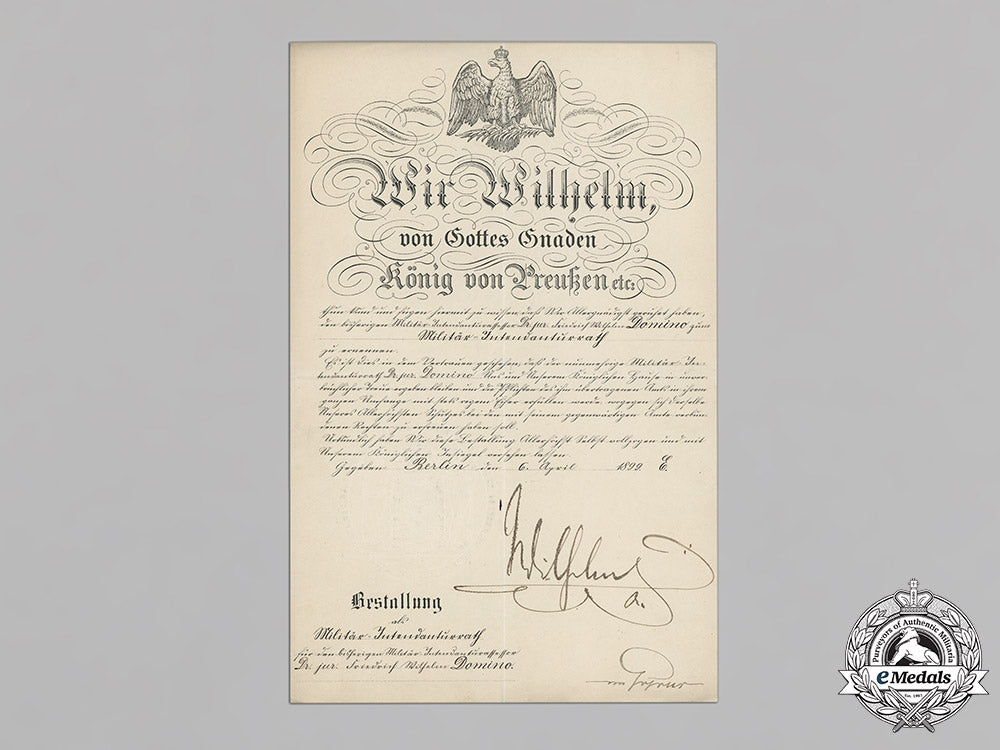 Wir Wilhelm,
von Gottes Gnaden
König von Preußen etc:
thun kund und fügen hiermit zu wissen, daß Wir Allergnädigst geruhet haben,
den bisherigen Militär-Intendanturassessor Dr. jur. Friedrich Wilhelm Domino zum
Militär-Intendanturrath
zu ernennen.
Es ist dies in dem Vertrauen geschehen, daß der nunmehrige Militär-In-
tendanturrath Dr. jur. Domino Uns und Unserem Königlichen Hause in unver-
brüchlicher Treue ergeben bleiben und die Pflichten des ihm übertragenen Amts in ihrem
ganzen Umfange mit stets regem Eifer erfüllen werde, wogegen sich derselbe
Unseres Allerhöchsten Schutzes bei den mit seinem gegenwärtigen Amte verbun-
denen Rechten zu erfreuen haben soll.
Urkundlich haben Wir diese Bestallung Allerhöchst Selbst vollzogen und mit
Unserem Königlichen Insiegel versehen lassen.
Gegeben Berlin den 6. April 1899
Wilhelm
Bestallung
als
Militär-Intendanturrath
für den bisherigen Militär-Intendanturassessor
Dr. jur. Friedrich Wilhelm Domino.
Purveyors of Authentic Militaria
eMedals